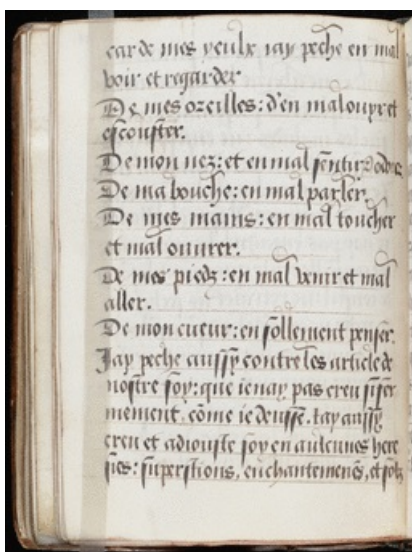 car de mes yeulx iay peche en mal
voir et regarder
De mes oreilles: d'en mal ouyr et
escouster.
De mon nez: et en mal sentir odorer
De ma bouche: en mal parler
De mes mains: en mal toucher
et mal ouurer.
De mes piedz: en mal venir et mal
aller.
De mon cueur: en follement penser.
Jay peche aussy contre les article de
nostre foy: que ie nay pas creu si fer
mement, cōme ie deusse. Iay aussy
creu et adiouste foy en aulcunes here
sies: superstions, enchantemens, et